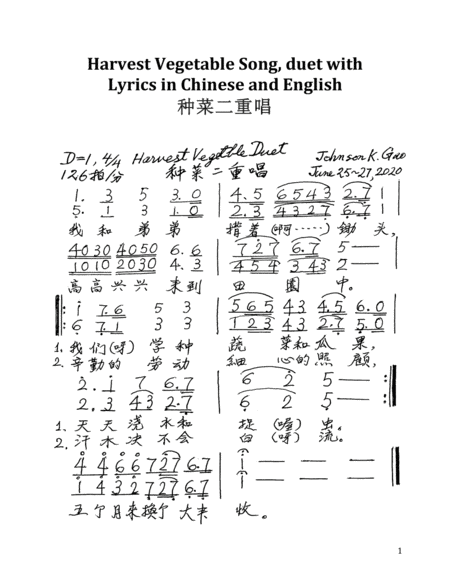 Harvest Vegetable Song, duet with
Lyrics in Chinese and English
种菜二重唱
D=1, 4/4 Harvest Vegetble Duet Johnson K. Gao
126拍/分 种菜二重唱 June 25~27, 2020
1. 3 5 3. 0 | 4. 5 6 5 4 3 2. 7 |
5. 1 3 1. 0 | 2. 3 4 3 2 7 6. 7 |
我 和 弟 弟 揹着(啊·····) 锄 头,
4030 4050 6. 6 | 7 2 7 6. 7 5 — |
1010 2030 4. 3 | 4 5 4 3 43 2 — |
高高兴兴 来到 田 园 中。
1 7.6 5 3 | 5 6 5 4 3 4. 5 6. 0 |
6 7.1 3 3 | 1 2 3 4 3 2. 7 5. 0 |
1. 我们(呀) 学 种 蔬 菜和 瓜 果,
2. 辛勤的 劳动 细 心的 照 顾,
2. 1 7 6.7 | 6 2 5 — :|
2. 3 43 2.7 | 6 2 5 — :|
1. 天 天 浇 水和 捉(喔) 虫。
2. 汗 水 决 不会 白(呀) 流。
4 4 6 6 7 27 6.7 | 1 — — — |
1 4 3 2 7 27 6.7 | 1 — — — |
五个月来换个大丰 收。
1